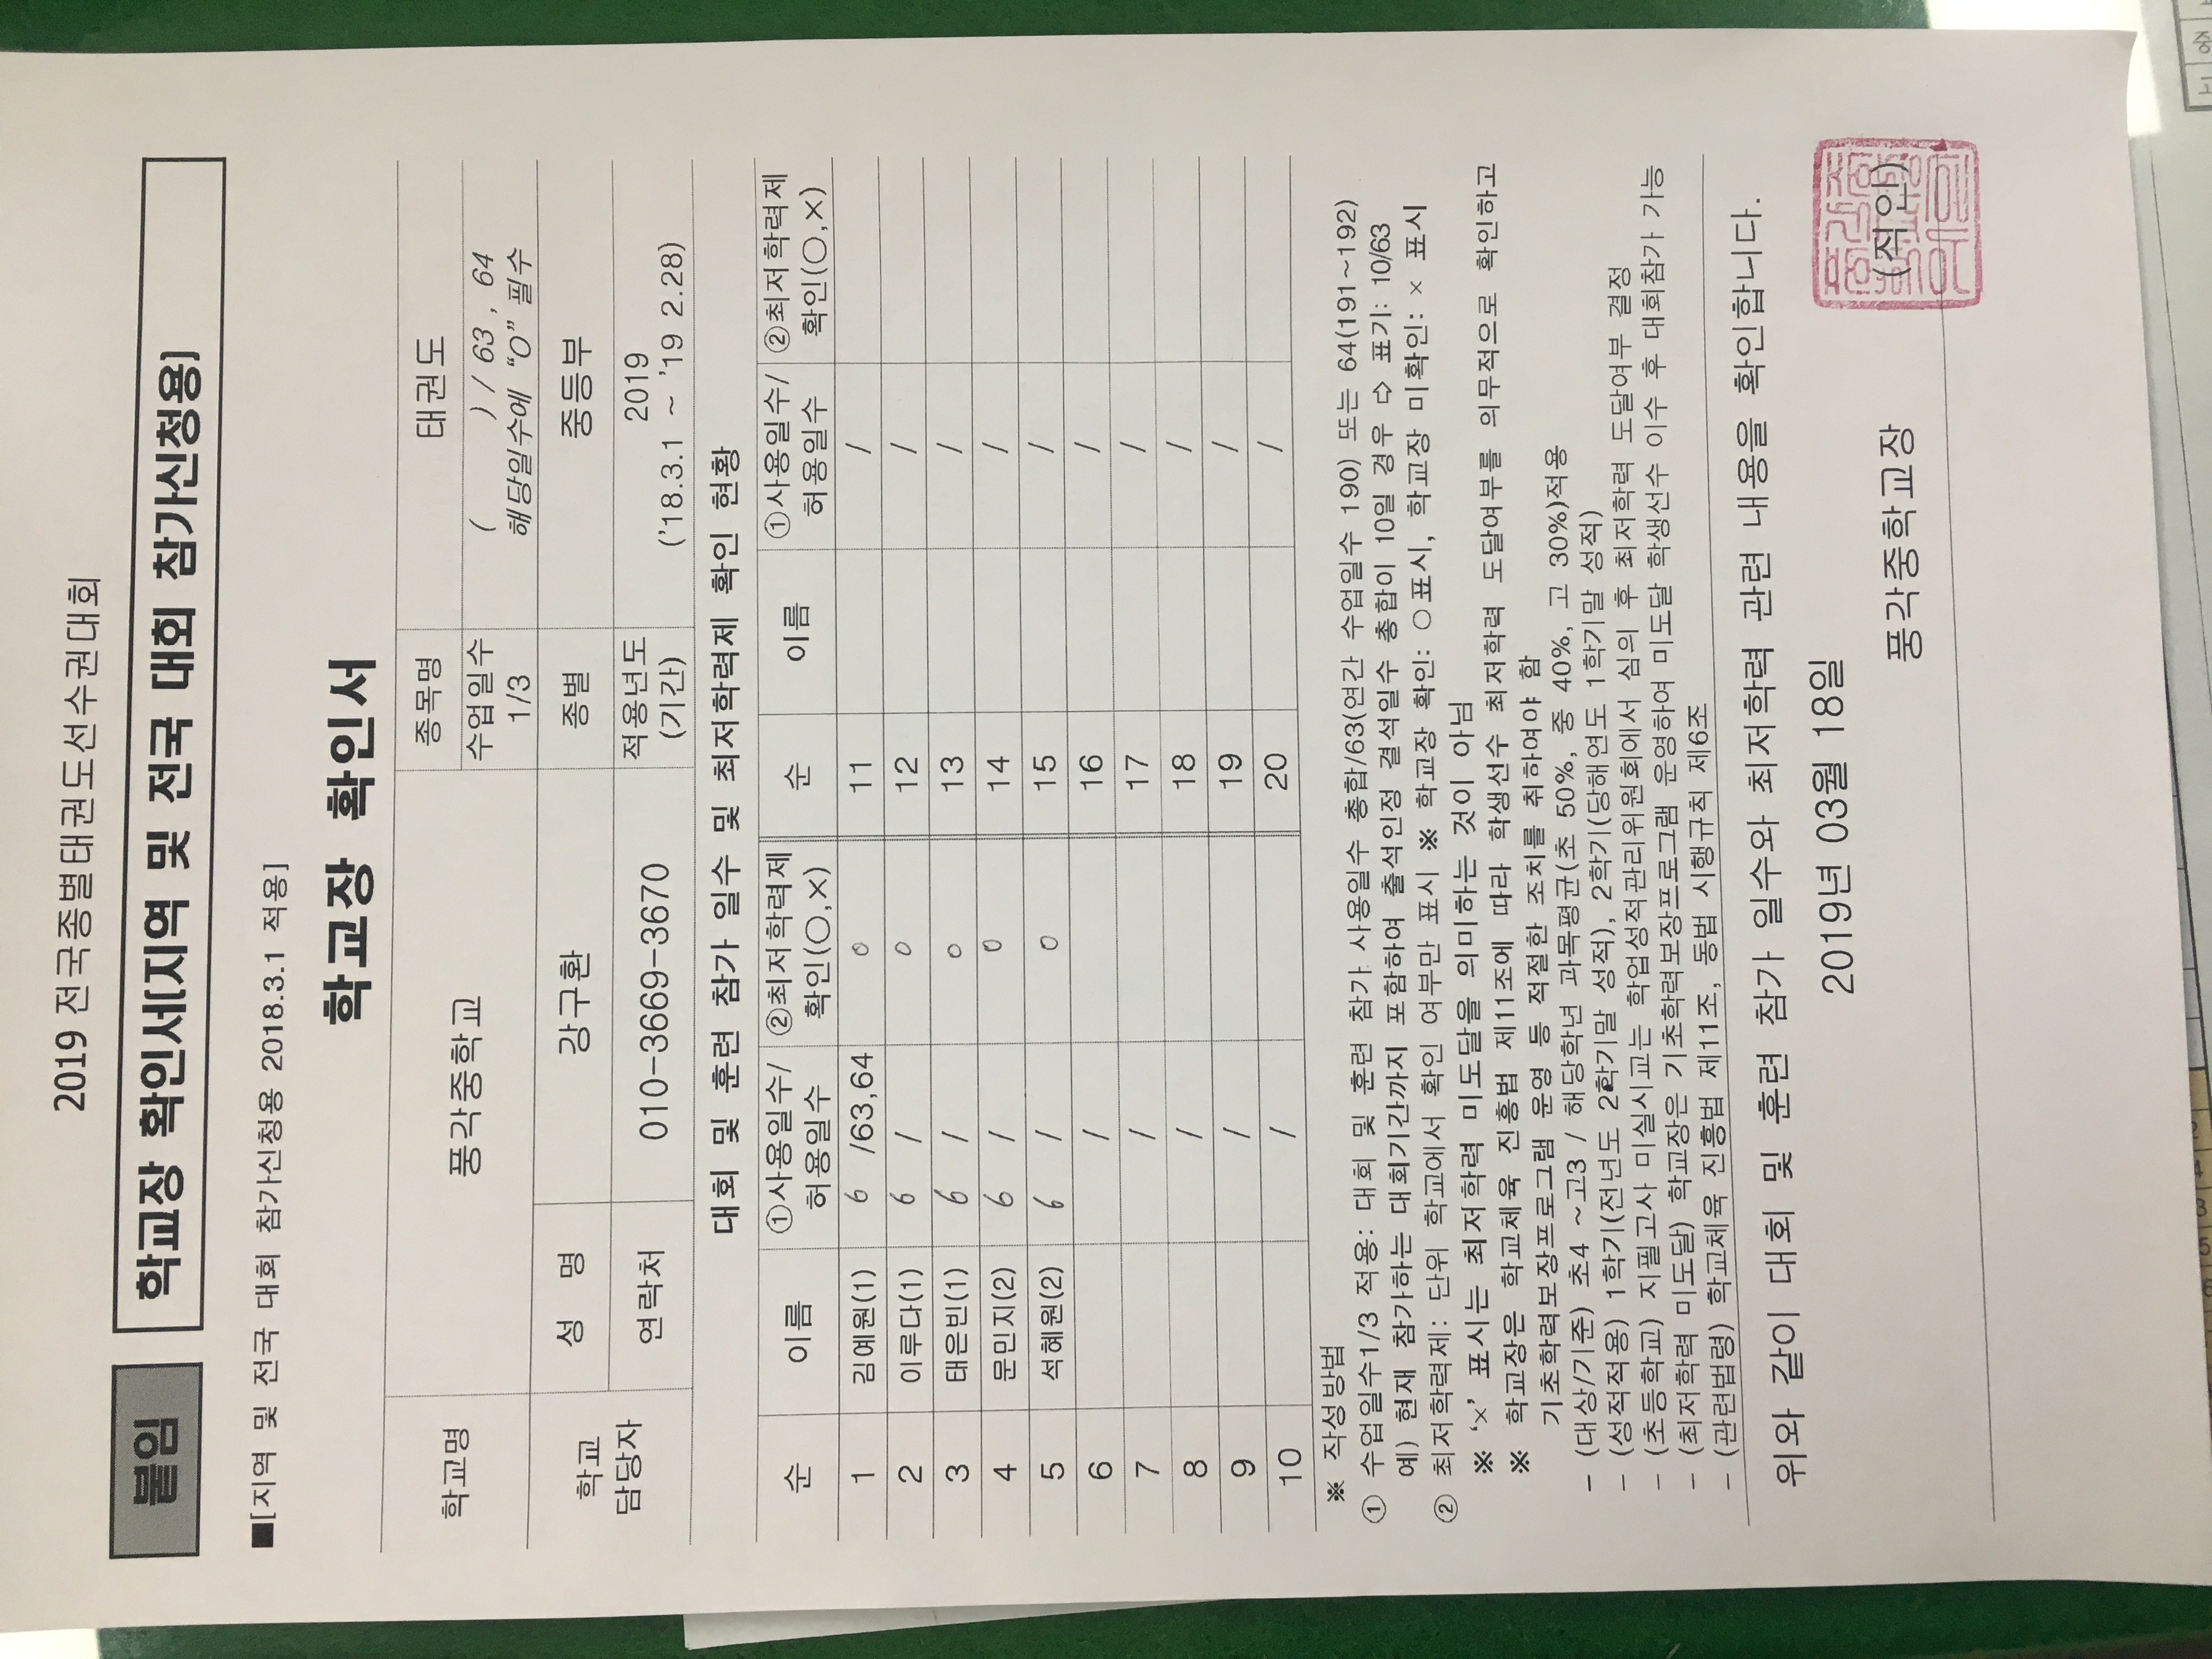 2019 전국종별태권도선수권대회
붙임 학교장 확인서[지역 및 전국 대회 참가신청용]
■[지역 및 전국 대회 참가신청용 2018.3.1 적용]
학교장 확인서
학교명 풍각중학교 종목명 태권도
수업일수 1/3 ( ) / 63 , 64
해당일수에 “O” 필수
학교 담당자 성 명 강구환 종별 중등부
연락처 010-3669-3670 적용년도 (기간) 2019
('18.3.1 ~ '19 2.28)
대회 및 훈련 참가 일수 및 최저학력제 확인 현황
순 이름 ①사용일수/허용일수 ②최저학력제 확인(○,×) 순 이름 ①사용일수/허용일수 ②최저학력제 확인(○,×)
1 김예원(1) 6 /63,64 o 11 /
2 이루다(1) 6 / o 12 /
3 태은빈(1) 6 / o 13 /
4 문민지(2) 6 / o 14 /
5 석혜원(2) 6 / o 15 /
6 / 16 /
7 / 17 /
8 / 18 /
9 / 19 /
10 / 20 /
※ 작성방법
① 수업일수1/3 적용: 대회 및 훈련 참가 사용일수 총합/63(연간 수업일수 190) 또는 64(191~192)
예) 현재 참가하는 대회기간까지 포함하여 출석인정 결석일수 총합이 10일 경우 ⇨ 표기: 10/63
② 최저학력제: 단위 학교에서 확인 여부만 표시 ※ 학교장 확인: ○표시, 학교장 미확인: × 표시
※ ‘×’ 표시는 최저학력 미도달을 의미하는 것이 아님
※ 학교장은 학교체육 진흥법 제11조에 따라 학생선수 최저학력 도달여부를 의무적으로 확인하고
기초학력보장프로그램 운영 등 적절한 조치를 취하여야 함
- (대상/기준) 초4 ~고3 / 해당학년 과목평균(초 50%, 중 40%, 고 30%)적용
- (성적적용) 1학기(전년도 2학기말 성적), 2학기(당해연도 1학기말 성적)
- (초등학교) 지필고사 미실시교는 학업성적관리위원회에서 심의 후 최저학력 도달여부 결정
- (최저학력 미도달) 학교장은 기초학력보장프로그램 운영하여 미도달 학생선수 이수 후 대회참가 가능
- (관련법령) 학교체육 진흥법 제11조, 동법 시행규칙 제6조
위와 같이 대회 및 훈련 참가 일수와 최저학력 관련 내용을 확인합니다.
2019년 03월 18일
풍각중학교장 (직인)